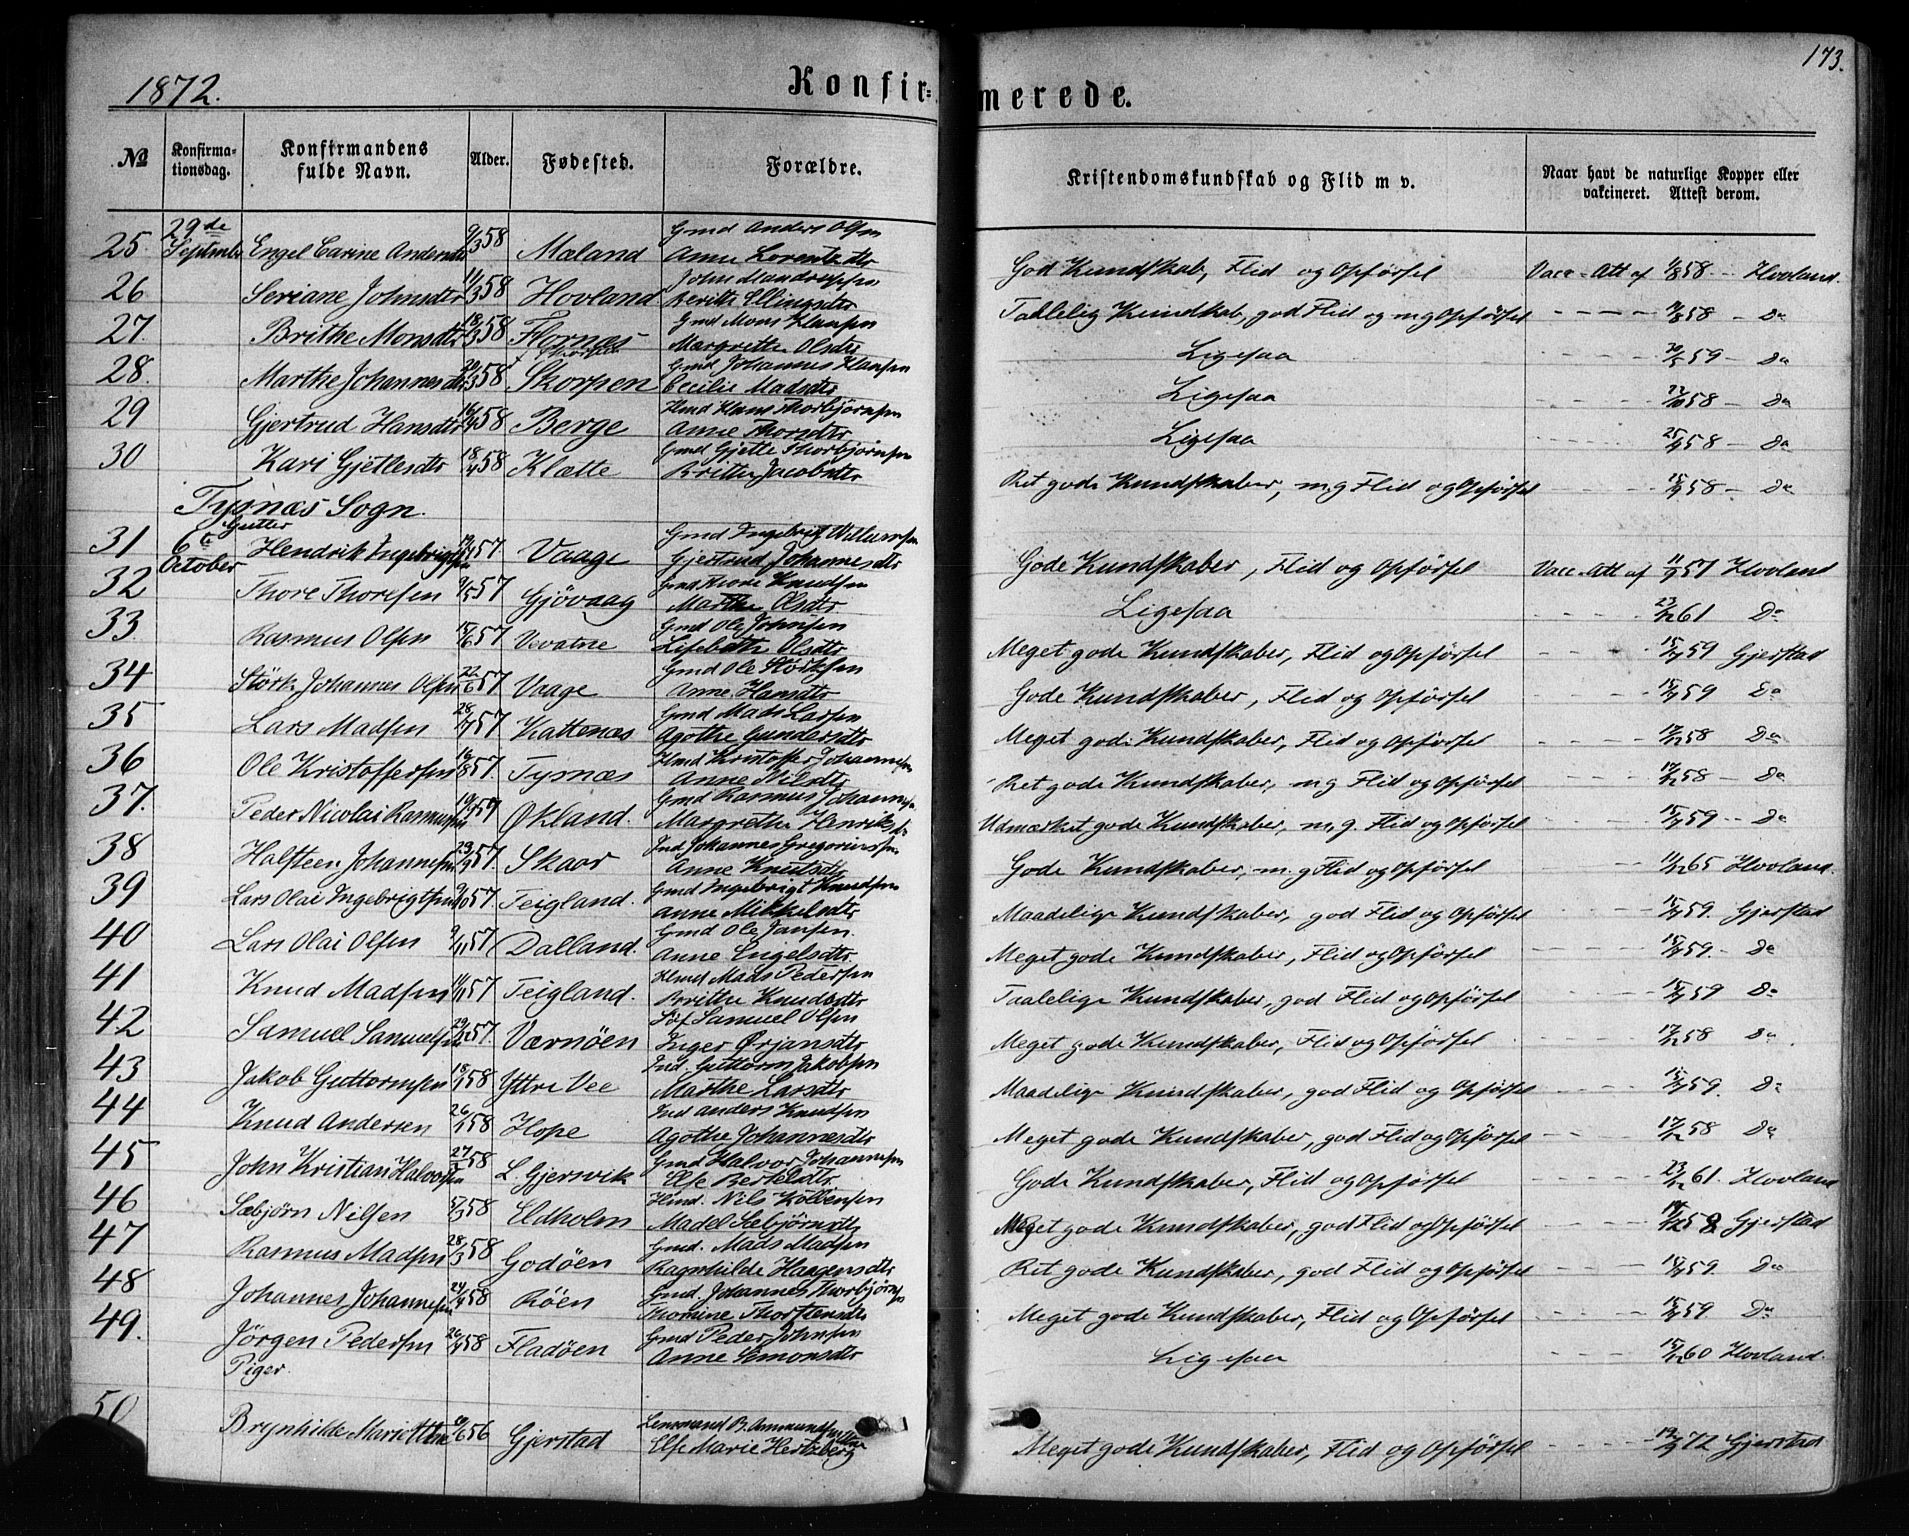 1872.
Konfir=
merede.
173.
No
Konfirmationsdag.
Konfirmandens fulde Navn.
Alder.
Fødested.
Forældre.
Kristendomskundskab og Flid m v.
Naar havt de naturlige Kopper eller vakcineret. Attest derom.
25. 29de September Engel Carine Andersdtr 9/3 58 Maland Gmd Anders Olsen Anne Lorentzdtr God Kundskab, Flid og Opførsel Vacc. Att af 1/8 58 Hovland.
26 Seriane Johnsdtr 11/3 58 Hovland John Beritte Ellingsdtr Taalelig Kundskab, god Flid og mg Opførsel 58 Do
27. Brithe Monsdtr 18/3 58 Flornæs Gmd Mons Klausen Margrethe Olsdtr Ligesaa 59 Do
28. Marthe Johannesdtr 20/3 58 Skorpen Gmd Johannes Klausen Cecilie Madsdtr Ligesaa 22/10 58 Do
29 Gjertrud Hansdtr 16/4 58 Berge Hmd Hans Thorbjørnsen Anne Thorsdtr Ligesaa 25/9 58 Do
30 Kari Gjetlesdtr 18/4 58 Klætte Gmd Gjetle Thorbjørnsen Brithe Jacobsdtr Ret gode Kundskaber, mg Flid og Opførsel 58 Do
Tysnæs Sogn.
Gutter
31 6te October Hendrik Ingebrigtsen 57 Vaage Gmd Ingebrigt Willumsen Gjertrud Johannesdtr Gode Kundskaber, Flid og Opførsel Vacc. Att af 11/9 57 Hovland
32 Thore Thoresen 9/5 57 Gjøvaag Gmd Thore Knudsen Marthe Olsdtr Ligesaa 23/12 61 Do
33 Rasmus Olsen 15/6 57 Vevatne Gmd Ole Johnsen Lisebeth Olsdtr Meget gode Kundskaber, Flid og Opførsel 59 Gjerstad
34 Størk Johannes Olsen 22/6 57 Vaage Gmd Ole Størksen Anne Hansdtr Gode Kundskaber, Flid og Opførsel 59 Do
35 Lars Madsen 28/7 57 Kattenæs Gmd Mads Larsen Agothe Gundersdtr Meget gode Kundskaber, Flid og Opførsel 17/12 58 Do
36 Ole Kristoffersen 16/8 57. Tysnæs Hmd Kristoffer Johannesen Anne Nilsdtr Ret gode Kundskaber, mg Flid og Opførsel 17/12 58 Do
37. Peder Nicolai Rasmussen 19/9 57 Økland. Gmd Rasmus Johannesen Margrethe Henriksdtr Udmærket gode Kundskaber, m.g. Flid og Opførsel 59 Do
38 Halsteen Johannesen 29/9 57. Skaar Ind Johannes Gregoriussen Anne Knutsdtr Gode Kundskaber, m.g Flid og Opførsel 11/12 65 Hovland.
39 Lars Olai Ingebrigtsen 9/10 57. Teigland. Gmd Ingebrigt Knudsen Anne Mikkelsdtr Maadelige Kundskaber, god Flid og Opførsel 59. Gjerstad
40 Lars Olai Olsen 9/11 57 Dalland. Gmd Ole Jansen. Anne Engelsdtr Meget gode Kundskaber, Flid og Opførsel 59. Do
41 Knud Madsen 11/11 57 Teigland. Hmd Mads Pedersen Brithe Knudsdtr Taalelige Kundskaber, god Flid og Opførsel 59 Do
42 Samuel Samuelsen 29/12 57. Værnøen Samuel Olsen Inger Ørjansdtr Meget gode Kundskaber, Flid og Opførsel 17/12 58 Do
43 Jakob Guttormsen 18/1 58 Yttre Vee Ind. Guttorm Jakobsen Marthe Larsdtr Maadelige Kundskaber, god Flid og Opførsel 59. Do
44 Knud Andersen 26/1 58 Hope Ind Anders Knudsen Agothe Johannesdtr Meget gode Kundskaber, god Flid og Opførsel 17/12 58 Do
45 John Kristian Halvorsen 27/2 58 L. Gjersvik Gmd Halvor Johannesen Else Bertelsdtr Gode Kundskaber, Flid og Opførsel 23/12 61. Hovland
46 Sæbjørn Nilsen 5/3 58 Eldholm Hmd. Nils Kolbensen Madel Sæbjørnsdtr Meget gode Kundskaber, god Flid og Opførsel 58 Gjerstad
47 Rasmus Madsen 28/3 58 Godøen Gmd. Mads Madsen Ragnhilde Haagensdtr Ret gode Kundskaber, god Flid og Opførsel 59. Do
48 Johannes Johannesen 24/4 58 Røen Gmd. Johannes Thorbjørnsen Thorine Thorstensdtr Meget gode Kundskaber, Flid og Opførsel 59 Do
49. Jørgen Pedersen 26/4 58 Fladøen Gmd Peder Johnsen Anne Simonsdtr Ligesaa 15/12 60 Hovland.
Piger.
50 Brynhilde Mariethe 56 Gjerstad Lensmand B. Ammundsen Else Marie Hertzberg Meget gode Kundskaber, Flid og Opførsel 72 Gjerstad